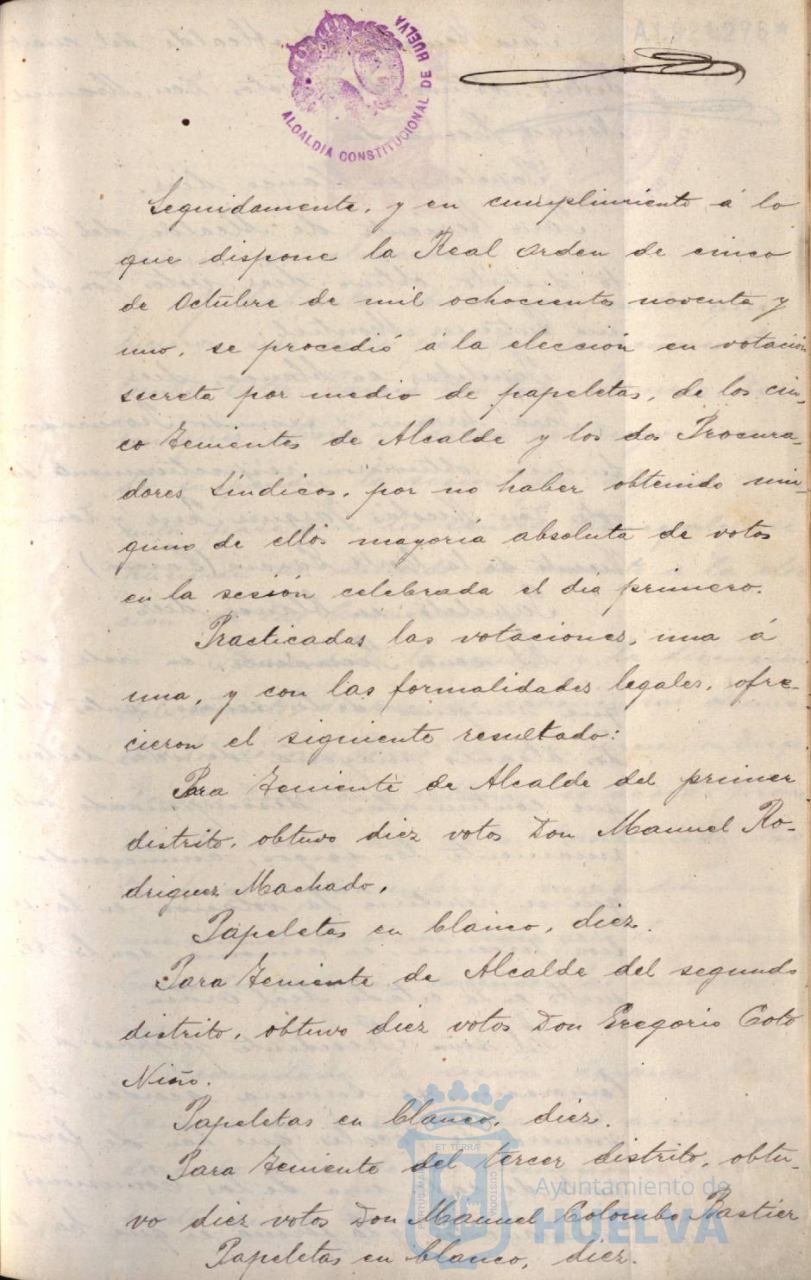 ALCALDIA CONSTITUCIONAL DE HUELVA
Seguidamente, y en cumplimiento á lo
que dispone la Real orden de cinco
de Octubre de mil ochocientos noventa y
uno, se procedió á la elección en votación
secreta por medio de papeletas, de los cin-
co Tenientes de Alcalde y los dos Procura-
dores Síndicos, por no haber obtenido nin-
guno de ellos mayoría absoluta de votos
en la sesión celebrada el dia primero.
Practicadas las votaciones, una á
una, y con las formalidades legales, ofre-
cieron el siguiente resultado:
Para Teniente de Alcalde del primer
distrito, obtuvo diez votos Don Manuel Ro-
driguez Machado.
Papeletas en blanco, diez.
Para Teniente de Alcalde del segundo
distrito, obtuvo diez votos Don Gregorio Coto
Niño.
Papeletas en blanco, diez.
Para Teniente del tercer distrito, obtu-
vo diez votos Don Manuel Colombo Bastier
Papeletas en blanco, diez.
Ayuntamiento de
HUELVA